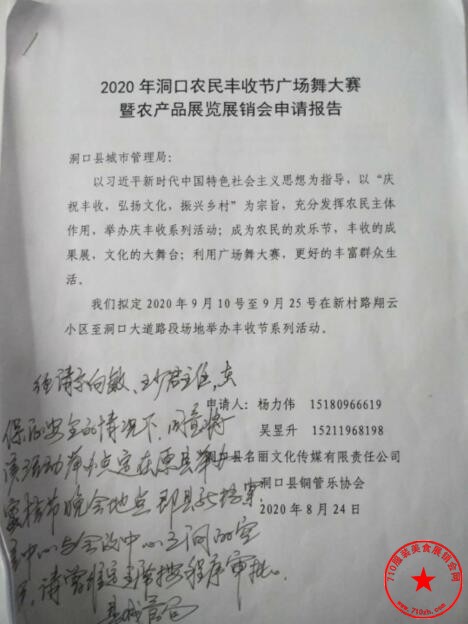 2020 年洞口农民丰收节广场舞大赛
暨农产品展览展销会申请报告
洞口县城市管理局:
以习近平新时代中国特色社会主义思想为指导，以“庆
祝丰收，弘扬文化，振兴乡村”为宗旨，充分发挥农民主体
作用，举办庆丰收系列活动；成为农民的欢乐节，丰收的成
果展，文化的大舞台；利用广场舞大赛，更好的丰富群众生
活。
我们拟定 2020 年 9 月 10 号至 9 月 25 号在新村路翔云
小区至洞口大道路段场地举办丰收节系列活动。
申请人：杨力伟 15180966619
吴昱升 15211968198
口县名丽文化传媒有限责任公司
洞口县铜管乐协会
2020 年 8 月 24 日
经请示向敏、
保证安全的情况下，同意将
该活动举办点定在原县举办
节晚会地点即县
中心与会议中心之间的空
请 按程序审批。
710服装美食展销会网
www.710zh.com